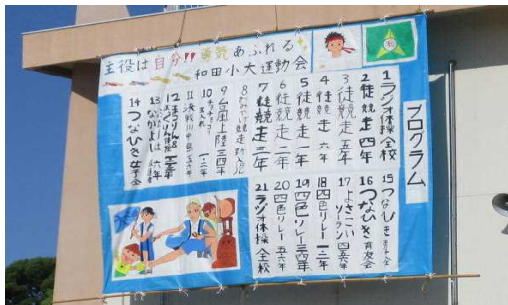 主役は自分!! 勇気あふれる
和田小大運動会
プログラム
1 ラジオ体操 全校
2 徒競走 四年
3 徒競走 五年
4 徒競走 六年
5 徒競走 一年
6 徒競走 二年
7 徒競走 三年
8
9 台風上陸 三四年
10 玉入れ 一・二年
11 決戦川中島 五六年
12
13 六年
14 つなひき 女子会
15 つなひき
16 つなひき 育友会
17 よさこいソーラン 四五六年
18 四色リレー 一二年
19 四色リレー 三四年
20 四色リレー 五六年
21 ラジオ体操 全校